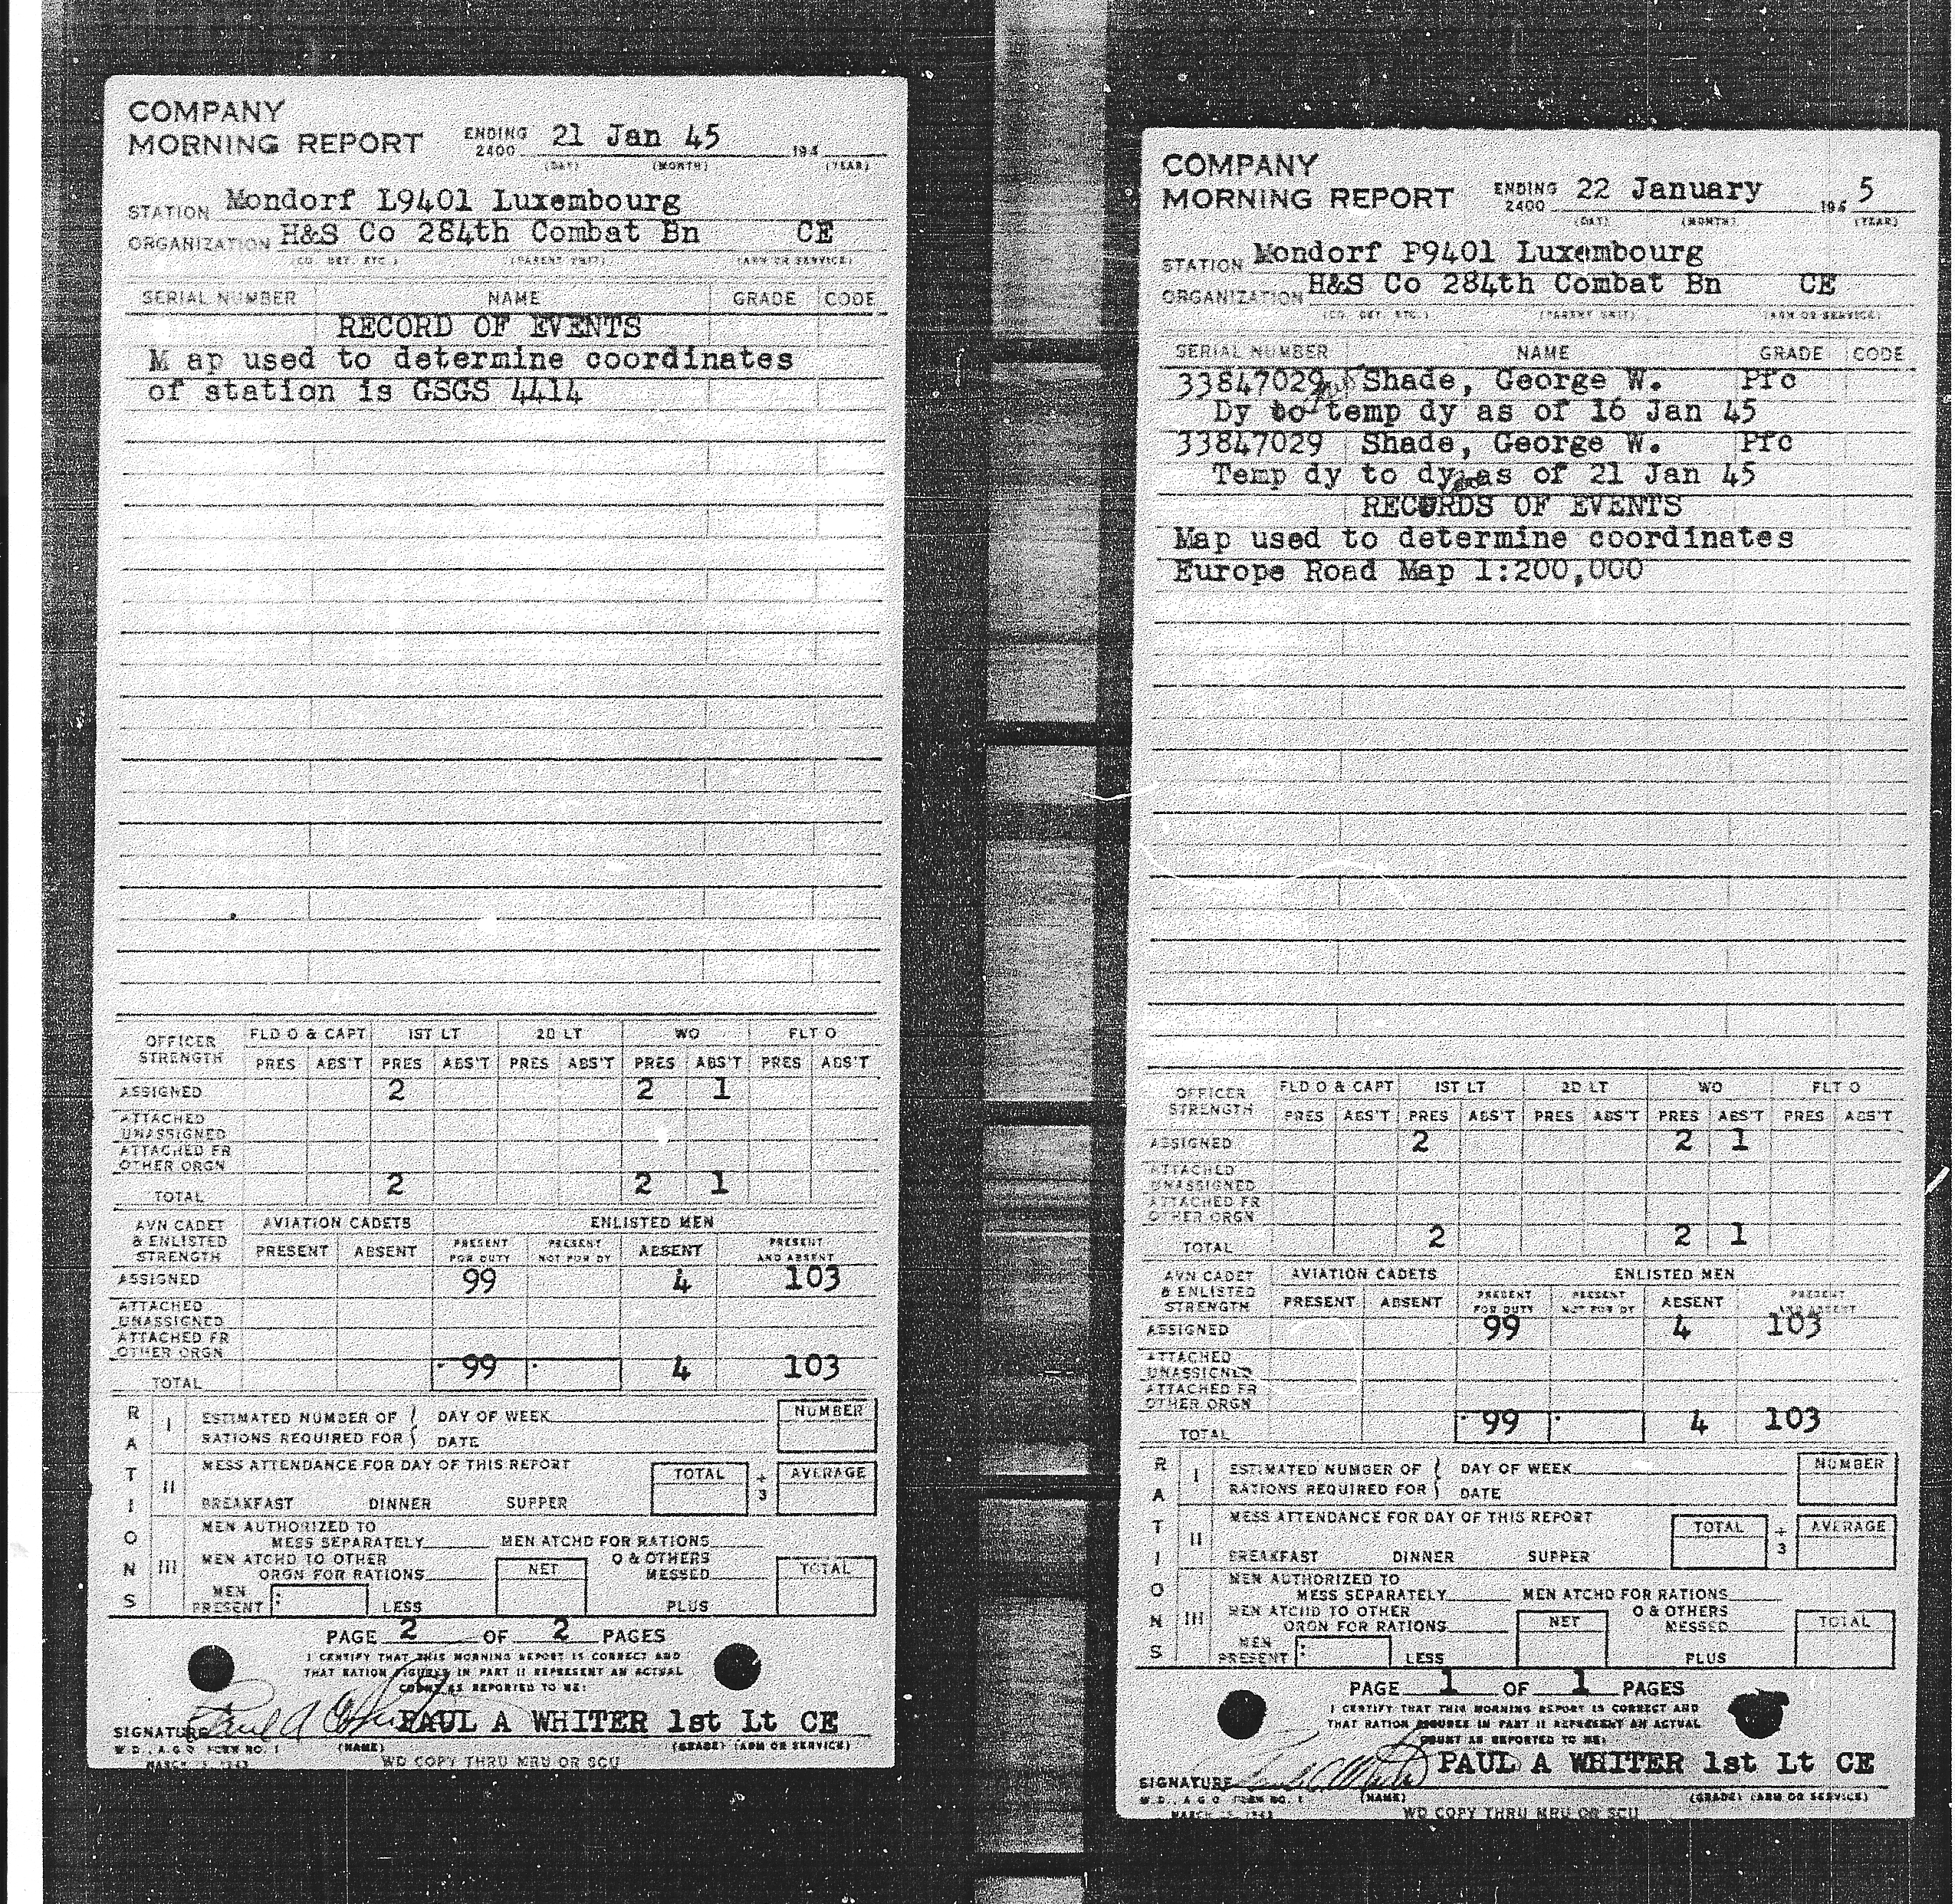 COMPANY
MORNING REPORT ENDING 2400 21 Jan 45 194
(DAY) (MONTH) (YEAR)
STATION Mondorf L9401 Luxembourg
ORGANIZATION H&S Co 284th Combat Bn CE
(CO. DET. ETC.) (PARENT UNIT) (ARM OR SERVICE)
SERIAL NUMBER NAME GRADE CODE
RECORD OF EVENTS
M ap used to determine coordinates
of station is GSGS 4414
OFFICER STRENGTH FLD O & CAPT 1ST LT 2D LT WO FLT O
PRES ABS'T PRES ABS'T PRES ABS'T PRES ABS'T PRES ABS'T
ASSIGNED 2 2 1
ATTACHED
UNASSIGNED
ATTACHED FR
OTHER ORGN
TOTAL 2 2 1
AVN CADET & ENLISTED STRENGTH AVIATION CADETS ENLISTED MEN
PRESENT ABSENT PRESENT FOR DUTY PRESENT NOT FOR DY ABSENT PRESENT AND ABSENT
ASSIGNED 99 4 103
ATTACHED
UNASSIGNED
ATTACHED FR
OTHER ORGN
TOTAL 99 4 103
RATIONS
I ESTIMATED NUMBER OF DAY OF WEEK NUMBER
RATIONS REQUIRED FOR DATE
II MESS ATTENDANCE FOR DAY OF THIS REPORT TOTAL ÷ 3 AVERAGE
BREAKFAST DINNER SUPPER
III MEN AUTHORIZED TO
MESS SEPARATELY MEN ATCHD FOR RATIONS
MEN ATCHD TO OTHER O & OTHERS
ORGN FOR RATIONS NET MESSED TOTAL
MEN PRESENT LESS PLUS
PAGE 2 OF 2 PAGES
I CERTIFY THAT THIS MORNING REPORT IS CORRECT AND
THAT RATION FIGURES IN PART II REPRESENT AN ACTUAL
COUNT AS REPORTED TO ME:
SIGNATURE Paul A Whiter PAUL A WHITER 1st Lt CE
W.D., A.G.O. FORM NO. 1 (NAME) (GRADE) (ARM OR SERVICE)
MARCH 1943 WD COPY THRU MRU OR SCU
COMPANY
MORNING REPORT ENDING 2400 22 January 194 5
(DAY) (MONTH) (YEAR)
STATION Mondorf P9401 Luxembourg
ORGANIZATION H&S Co 284th Combat Bn CE
(CO. DET. ETC.) (PARENT UNIT) (ARM OR SERVICE)
SERIAL NUMBER NAME GRADE CODE
33847029 Shade, George W. Pfc
Dy to temp dy as of 16 Jan 45
33847029 Shade, George W. Pfc
Temp dy to dy as of 21 Jan 45
RECORDS OF EVENTS
Map used to determine coordinates
Europe Road Map 1:200,000
OFFICER STRENGTH FLD O & CAPT 1ST LT 2D LT WO FLT O
PRES ABS'T PRES ABS'T PRES ABS'T PRES ABS'T PRES ABS'T
ASSIGNED 2 2 1
ATTACHED
UNASSIGNED
ATTACHED FR
OTHER ORGN
TOTAL 2 2 1
AVN CADET & ENLISTED STRENGTH AVIATION CADETS ENLISTED MEN
PRESENT ABSENT PRESENT FOR DUTY PRESENT NOT FOR DY ABSENT PRESENT AND ABSENT
ASSIGNED 99 4 103
ATTACHED
UNASSIGNED
ATTACHED FR
OTHER ORGN
TOTAL 99 4 103
RATIONS
I ESTIMATED NUMBER OF DAY OF WEEK NUMBER
RATIONS REQUIRED FOR DATE
II MESS ATTENDANCE FOR DAY OF THIS REPORT TOTAL ÷ 3 AVERAGE
BREAKFAST DINNER SUPPER
III MEN AUTHORIZED TO
MESS SEPARATELY MEN ATCHD FOR RATIONS
MEN ATCHD TO OTHER O & OTHERS
ORGN FOR RATIONS NET MESSED TOTAL
MEN PRESENT LESS PLUS
PAGE 1 OF 1 PAGES
I CERTIFY THAT THIS MORNING REPORT IS CORRECT AND
THAT RATION FIGURES IN PART II REPRESENT AN ACTUAL
COUNT AS REPORTED TO ME:
SIGNATURE Paul A Whiter PAUL A WHITER 1st Lt CE
W.D., A.G.O. FORM NO. 1 (NAME) (GRADE) (ARM OR SERVICE)
MARCH 1943 WD COPY THRU MRU OR SCU